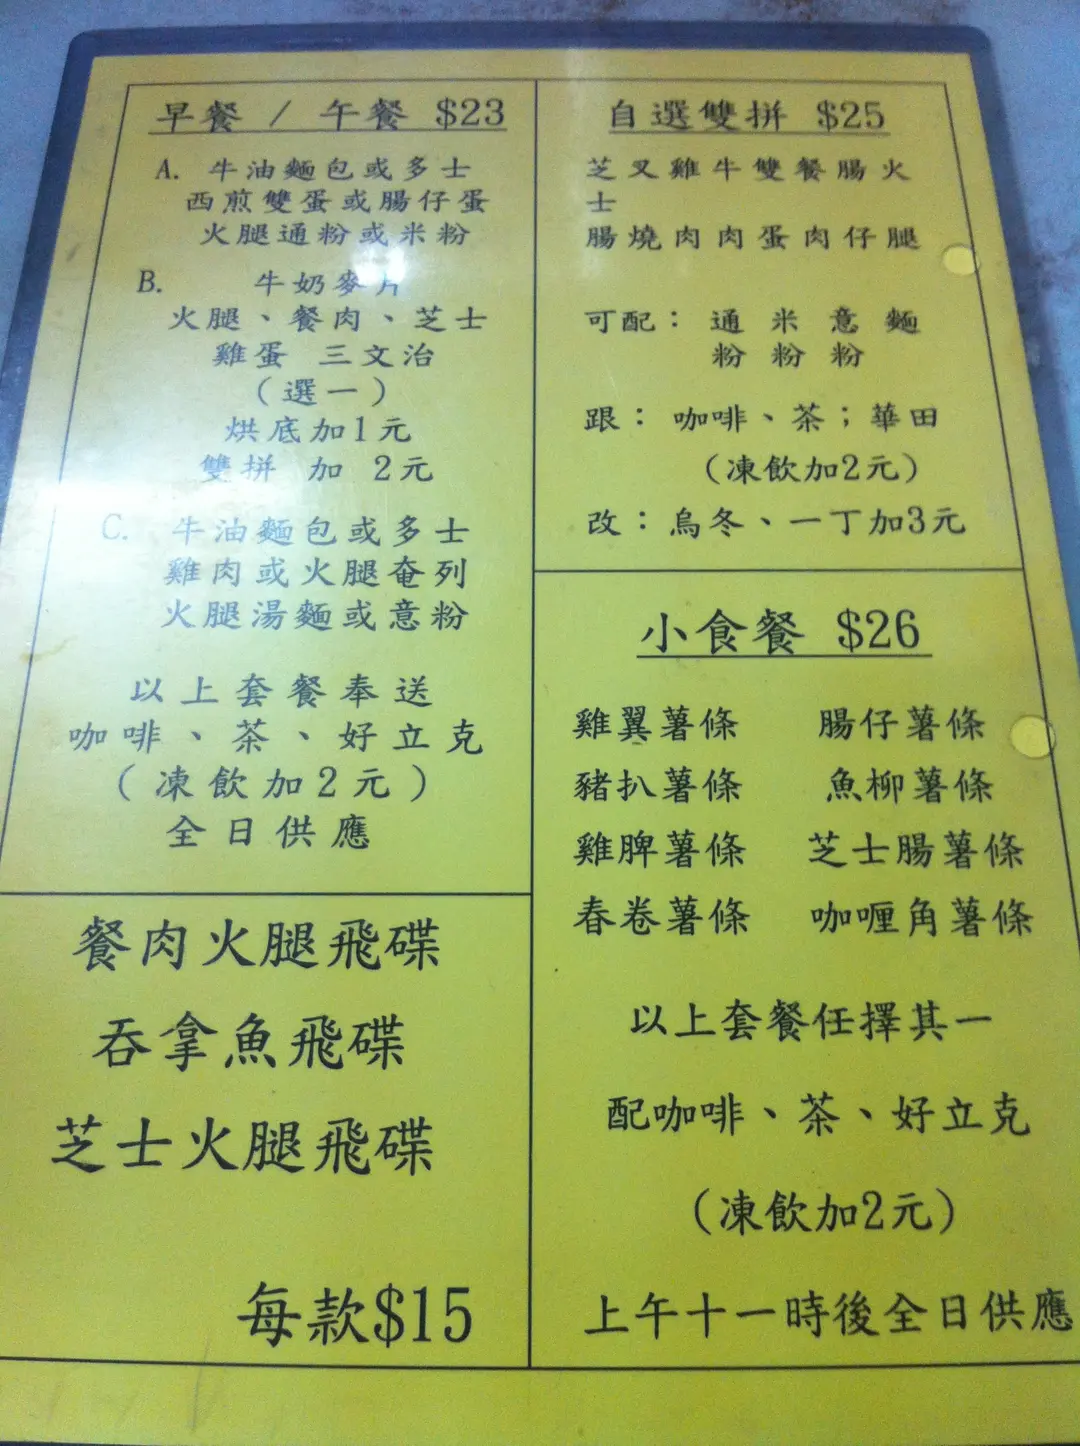 早餐 / 午餐 $23
A. 牛油麵包或多士
西煎雙蛋或腸仔蛋
火腿通粉或米粉
B. 牛奶麥片
火腿、餐肉、芝士
雞蛋 三文治
(選一)
烘底加1元
雙拼 加 2元
C. 牛油麵包或多士
雞肉或火腿奄列
火腿湯麵或意粉
以上套餐奉送
咖啡、茶、好立克
(凍飲加2元)
全日供應
餐肉火腿飛碟
吞拿魚飛碟
芝士火腿飛碟
每款$15
自選雙拼 $25
芝叉雞牛雙餐腸火
士
腸燒肉肉蛋肉仔腿
可配： 通 米 意 麵
粉 粉 粉
跟： 咖啡、茶；華田
(凍飲加2元)
改：烏冬、一丁加3元
小食餐 $26
雞翼薯條 腸仔薯條
豬扒薯條 魚柳薯條
雞脾薯條 芝士腸薯條
春卷薯條 咖喱角薯條
以上套餐任擇其一
配咖啡、茶、好立克
(凍飲加2元)
上午十一時後全日供應